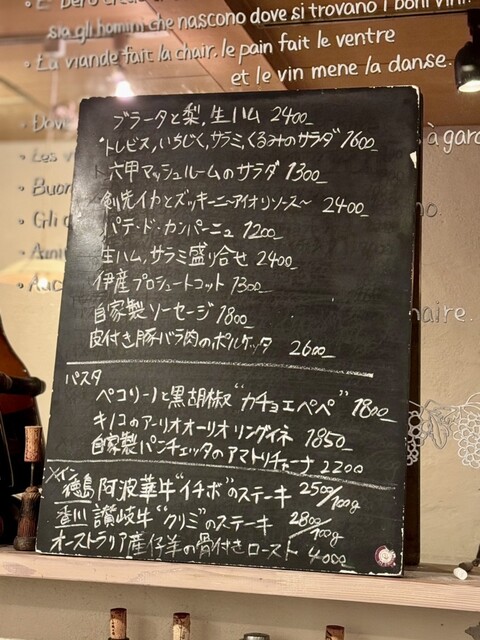 E' pero
sia gli homini che nascono dove si trovano i buoni vini
• La viande fait la chair, le pain fait le ventre
et le vin mene la danse.
ブラータと梨、生ハム 2400_
"トレビス、いちじく、サラミ、くるみのサラダ" 1600_
六甲マッシュルームのサラダ 1300_
剣先イカとズッキーニ〜アイオリソース〜 2400_
パテ・ド・カンパーニュ 1200_
生ハム、サラミ盛り合せ 2400_
伊産プロシュートコット 1300_
自家製ソーセージ 1800_
皮付き豚バラ肉のポルケッタ 2600_
パスタ
ペコリーノと黒胡椒"カチョエペペ" 1800_
キノコのアーリオオーリオ リングイネ 1850_
自家製パンチェッタのアマトリチャーナ 2200
メイン
徳島 阿波華牛"イチボ"のステーキ 2500/100g
香川 讃岐牛"クリミ"のステーキ 2800/100g
オーストラリア産仔羊の骨付きロースト 4000
• Les v
• Buon
• Gli a
à gar
no.
naire.